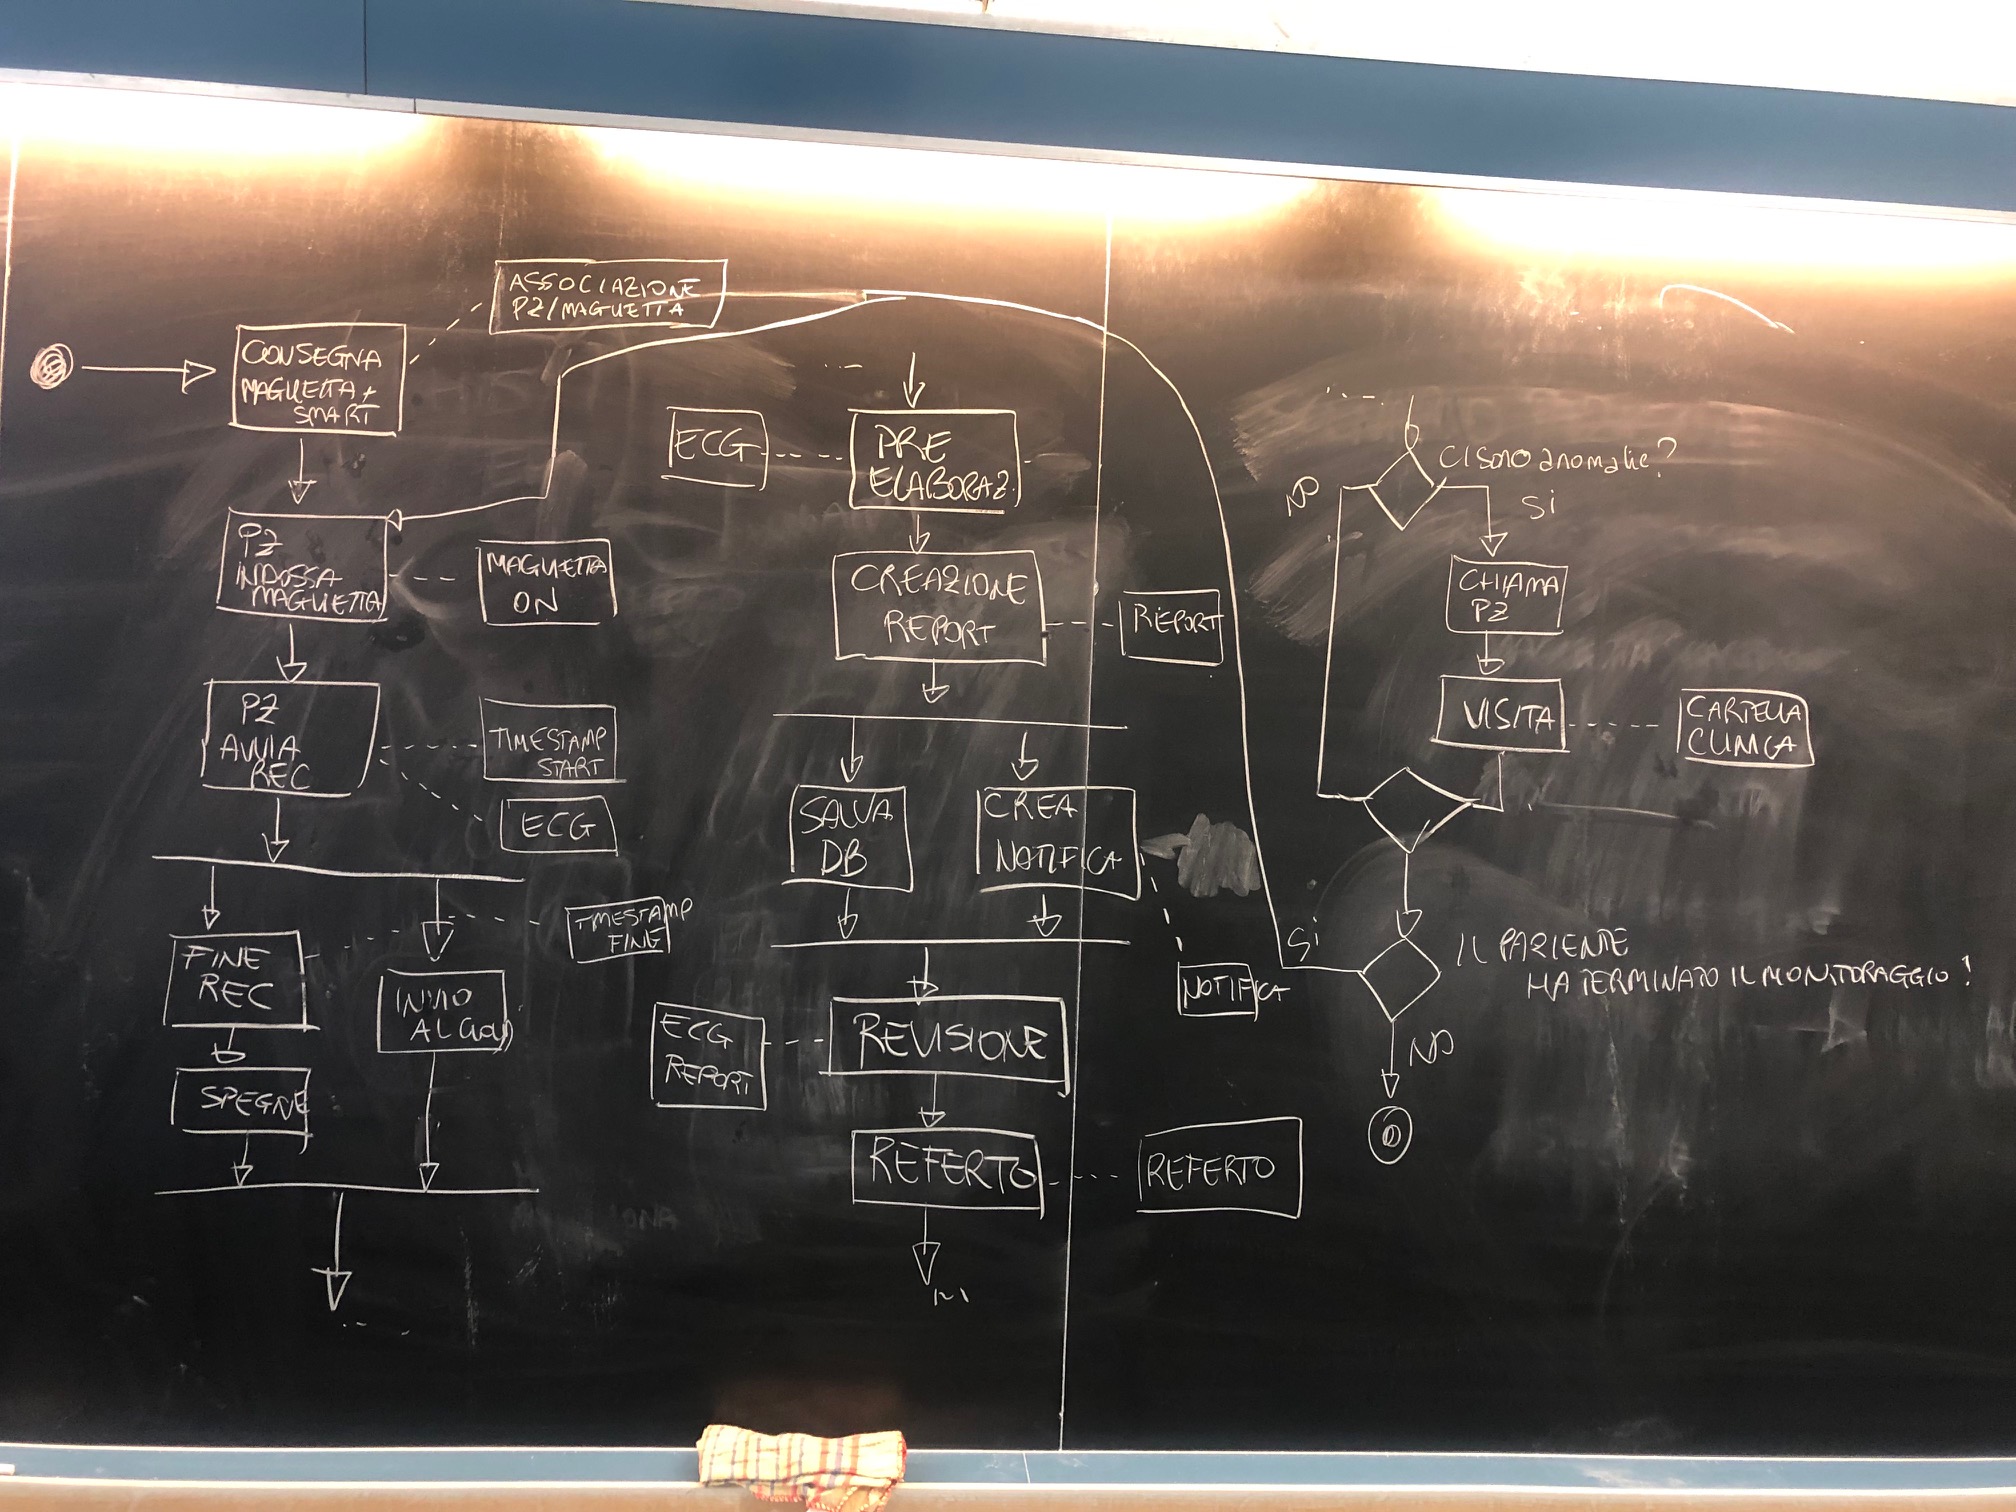 ASSOCIAZIONE
PZ/MAGLIETTA
CONSEGNA
MAGLIETTA +
SMART
PZ
INDOSSA
MAGLIETTA
MAGLIETTA
ON
PZ
AVVIA
REC
TIMESTAMP
START
ECG
TIMESTAMP
FINE
FINE
REC
INVIO
AL CLOUD
SPEGNE
...
...
ECG
PRE
ELABORAZ.
CREAZIONE
REPORT
REPORT
SALVA
DB
CREA
NOTIFICA
NOTIFICA
ECG
REPORT
REVISIONE
REFERTO
REFERTO
...
CI SONO anomalie?
NO
Si
CHIAMA
PZ
VISITA
CARTELLA
CLINICA
Si
IL PAZIENTE
HA TERMINATO IL MONITORAGGIO?
NO